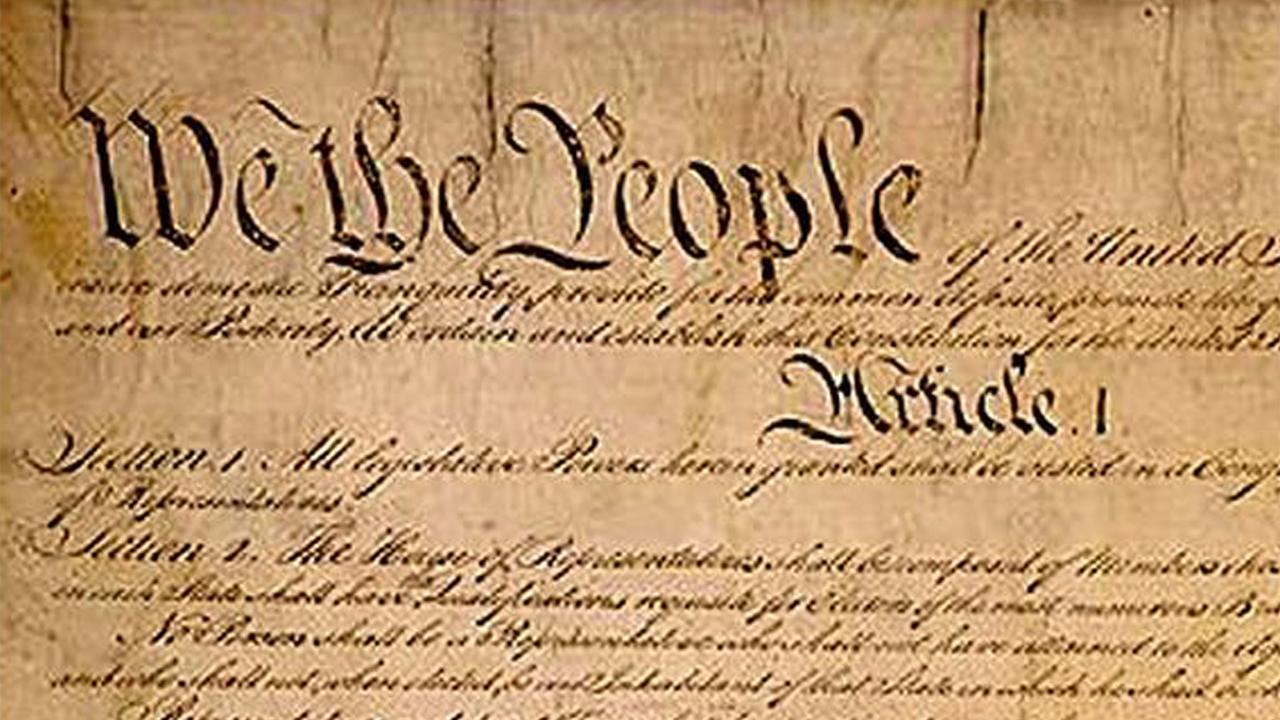 We the People of the United S
insure domestic Tranquility, provide for the common defence, promote the g
and our Posterity, do ordain and establish this Constitution for the United St
Article. I.
Section. 1. All legislative Powers herein granted shall be vested in a Cong
of Representatives.
Section. 2. The House of Representatives shall be composed of Members chos
in each State shall have Qualifications requisite for Electors of the most numerous Bra
No Person shall be a Representative who shall not have attained to the Age
and who shall not, when elected, be an Inhabitant of that State in which he shall be
Representatives